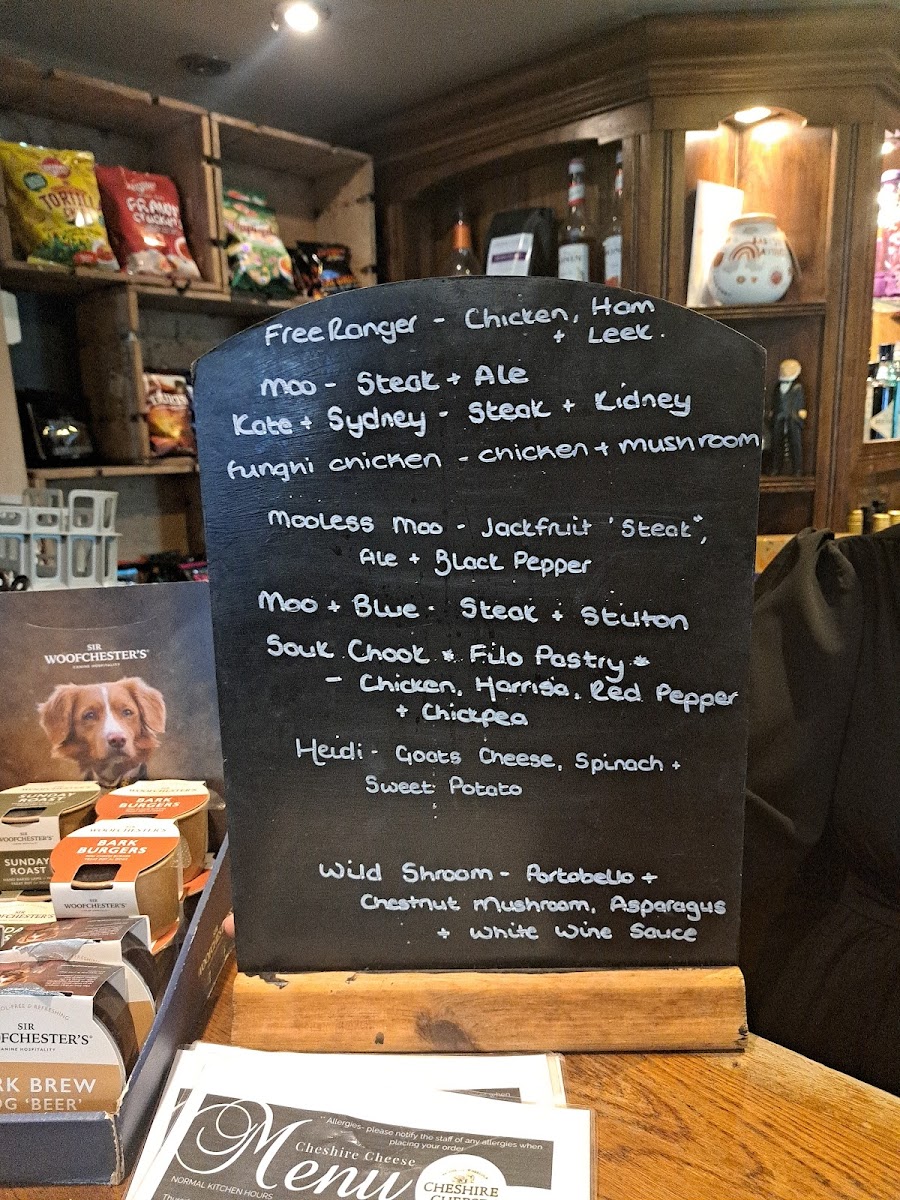 TORTILLA
FreeRanger - Chicken, Ham
+ Leek.
Moo - Steak + Ale
Kate + Sydney - Steak + Kidney
Funghi chicken - chicken + mushroom
Mooless Moo - Jackfruit 'Steak",
Ale + Black Pepper
Moo + Blue - Steak + Stilton
Souk Chook * Filo Pastry *
- Chicken, Harrisa, Red Pepper
+ Chickpea
Heidi - Goats Cheese, Spinach +
Sweet Potato
Wild Shroom - Portobello +
Chestnut Mushroom, Asparagus
+ White Wine Sauce
SIR
WOOFCHESTER'S
CANINE HOSPITALITY
SUNDAY
ROAST
BARK
BURGERS
SIR
WOOFCHESTER'S
BARK
BURGERS
SUNDAY
ROAST
SIR
WOOFCHESTER'S
SIR
OOFCHESTER'S
CANINE HOSPITALITY
RK BREW
OG 'BEER'
Allergies- please notify the staff of any allergies when
placing your order
Cheshire Cheese
Menu
NORMAL KITCHEN HOURS
CHESHIRE